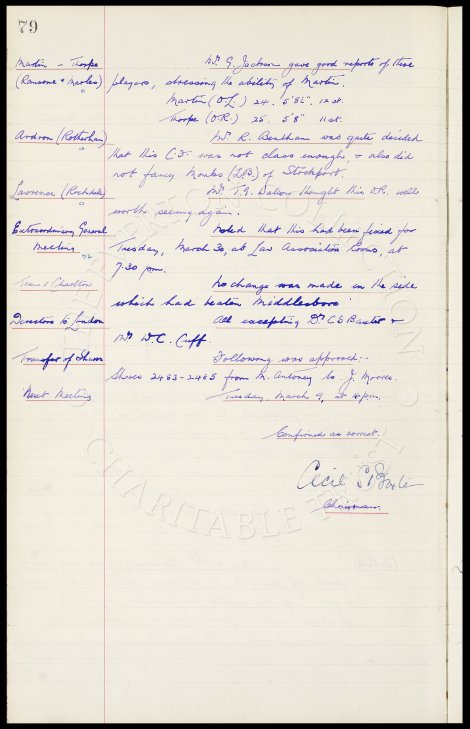 79
Martin - Thorpe Mr. G. Jackson gave good reports of these
(Ransome & Marles) players, stressing the ability of Martin.
Martin (O.L.) 24. 5'8½". 12 st.
Thorpe (O.R.) 25. 5'8" 11 st.
Ardron (Rotherham) Mr. R. Bentham was quite decided
that this C.F. was not class enough, & also did
not fancy Monks (L.B.) of Stockport.
Lawrence (Rochdale) Mr. T.G. thought this O.R. well
worth seeing again.
Extraordinary General Noted that this had been fixed for
Meeting Tuesday, March 30, at Law Association Rooms, at
7.30 pm.
Team v. Charlton No change was made in the side
which had beaten Middlesboro'
Directors to London All excepting Dr. C S Baxter &
Mr. W.C. Cuff
Transfer of Shares Following was approved:-
Shares 2483-2485 from M. to J. Moores.
Next Meeting Tuesday, March 9, at 4 pm.
Confirmed as correct.
Cecil S Baxter
Chairman.
THE EVERTON COLLECTION
CHARITABLE TRUST